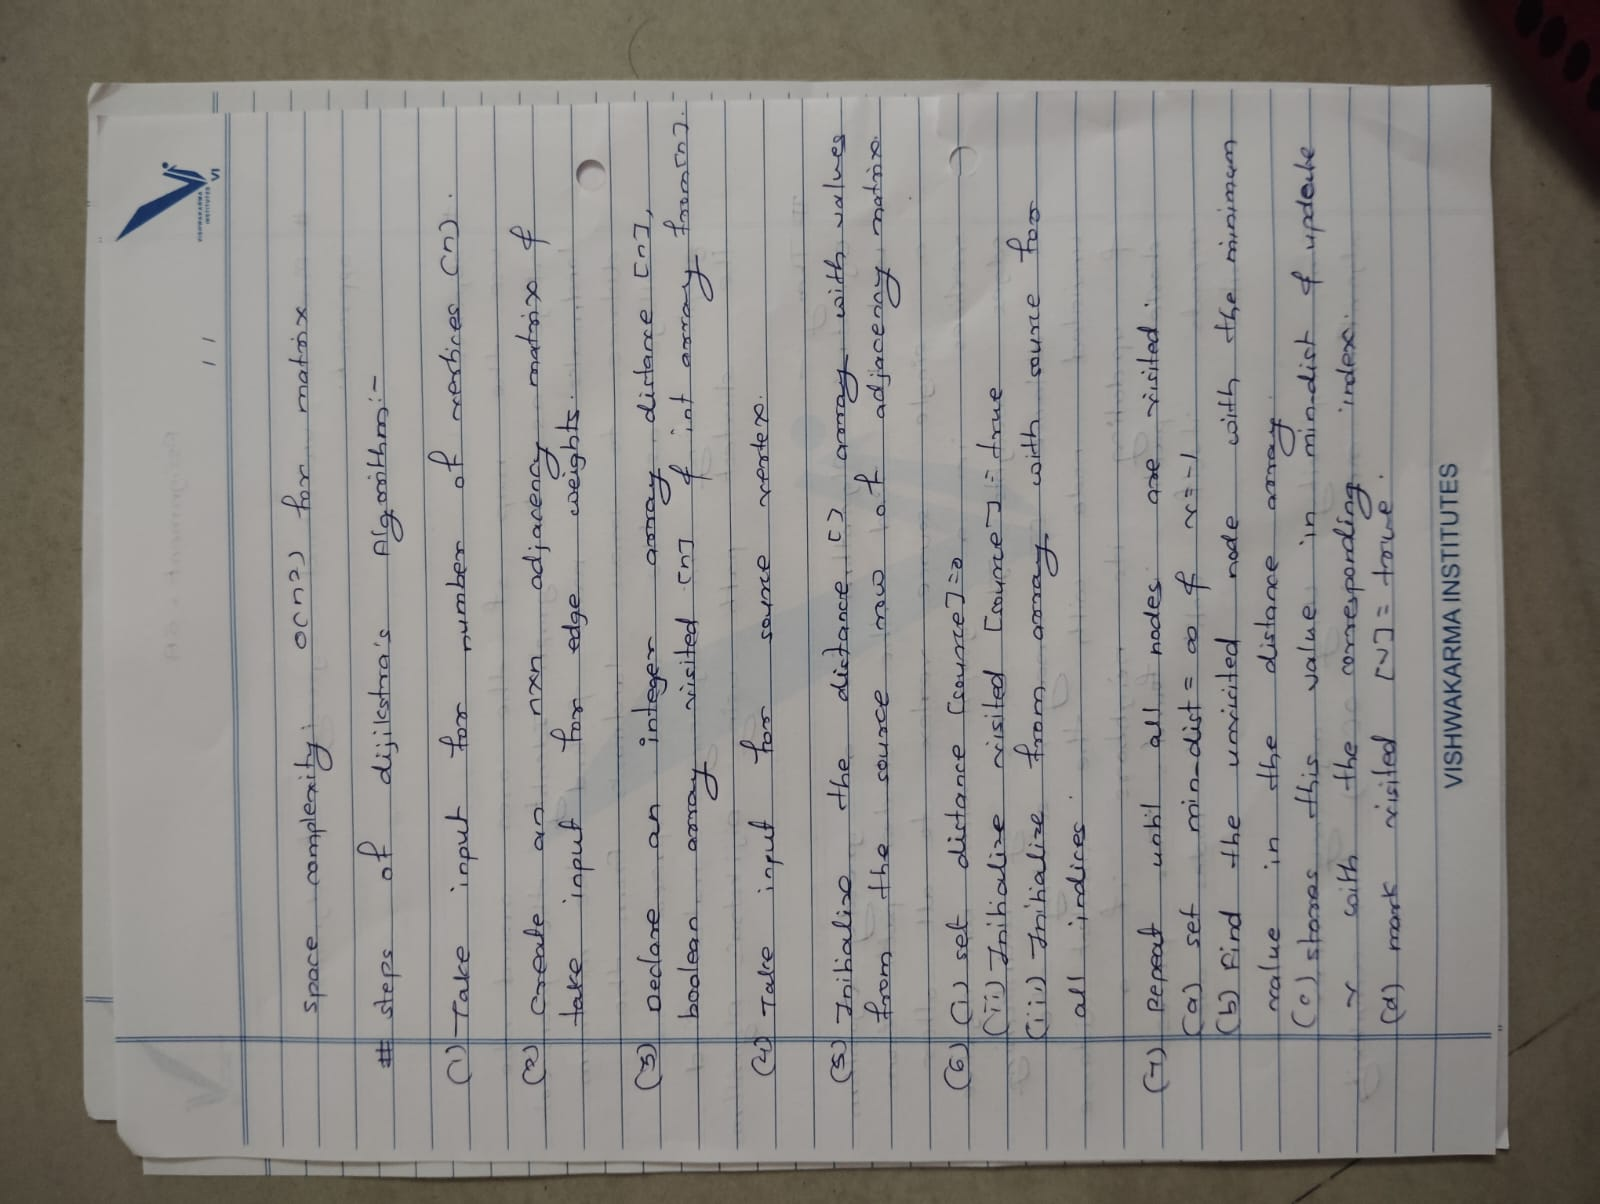 VISHWAKARMA
INSTITUTES
VI
/ /
space complexity: O(n2) for matrix
# steps of dijikstra's Algorithm:-
(1) Take input for number of vertices (n).
(2) Create an nxn adjacency matrix &
take input for edge weights.
(3) Declare an integer array distance [n],
boolean array visited [n] & int array from[n].
(4) Take input for source vertex.
(5) Initialize the distance [] array with values
from the source row of adjacency matrix.
(6) (i) set distance [source]=0
(ii) Initialize visited [source]=true
(iii) Initialize from array with source for
all indices.
(7) Repeat until all nodes are visited:
(a) set min-dist = ∞ & v=-1
(b) Find the unvisited node with the minimum
value in the distance array.
(c) stores this value in min-dist & update
v with the corresponding index.
(d) mark visited [v] = true.
VISHWAKARMA INSTITUTES